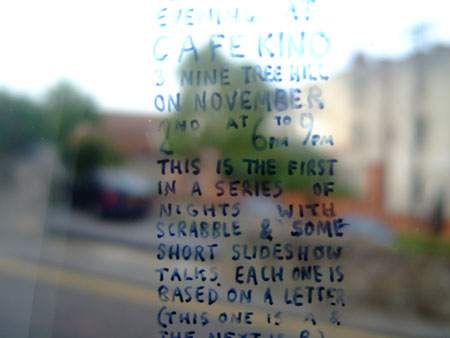 EVENING AT
CAFE KINO
3 NINE TREE HILL
ON NOVEMBER
2ND AT 6PM TO 9PM
THIS IS THE FIRST
IN A SERIES OF
NIGHTS WITH
SCRABBLE & SOME
SHORT SLIDESHOW
TALKS. EACH ONE IS
BASED ON A LETTER
(THIS ONE IS A &
THE NEXT IS B)